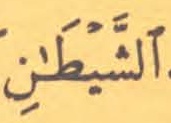 ٱلشَّيْطَـٰنِ